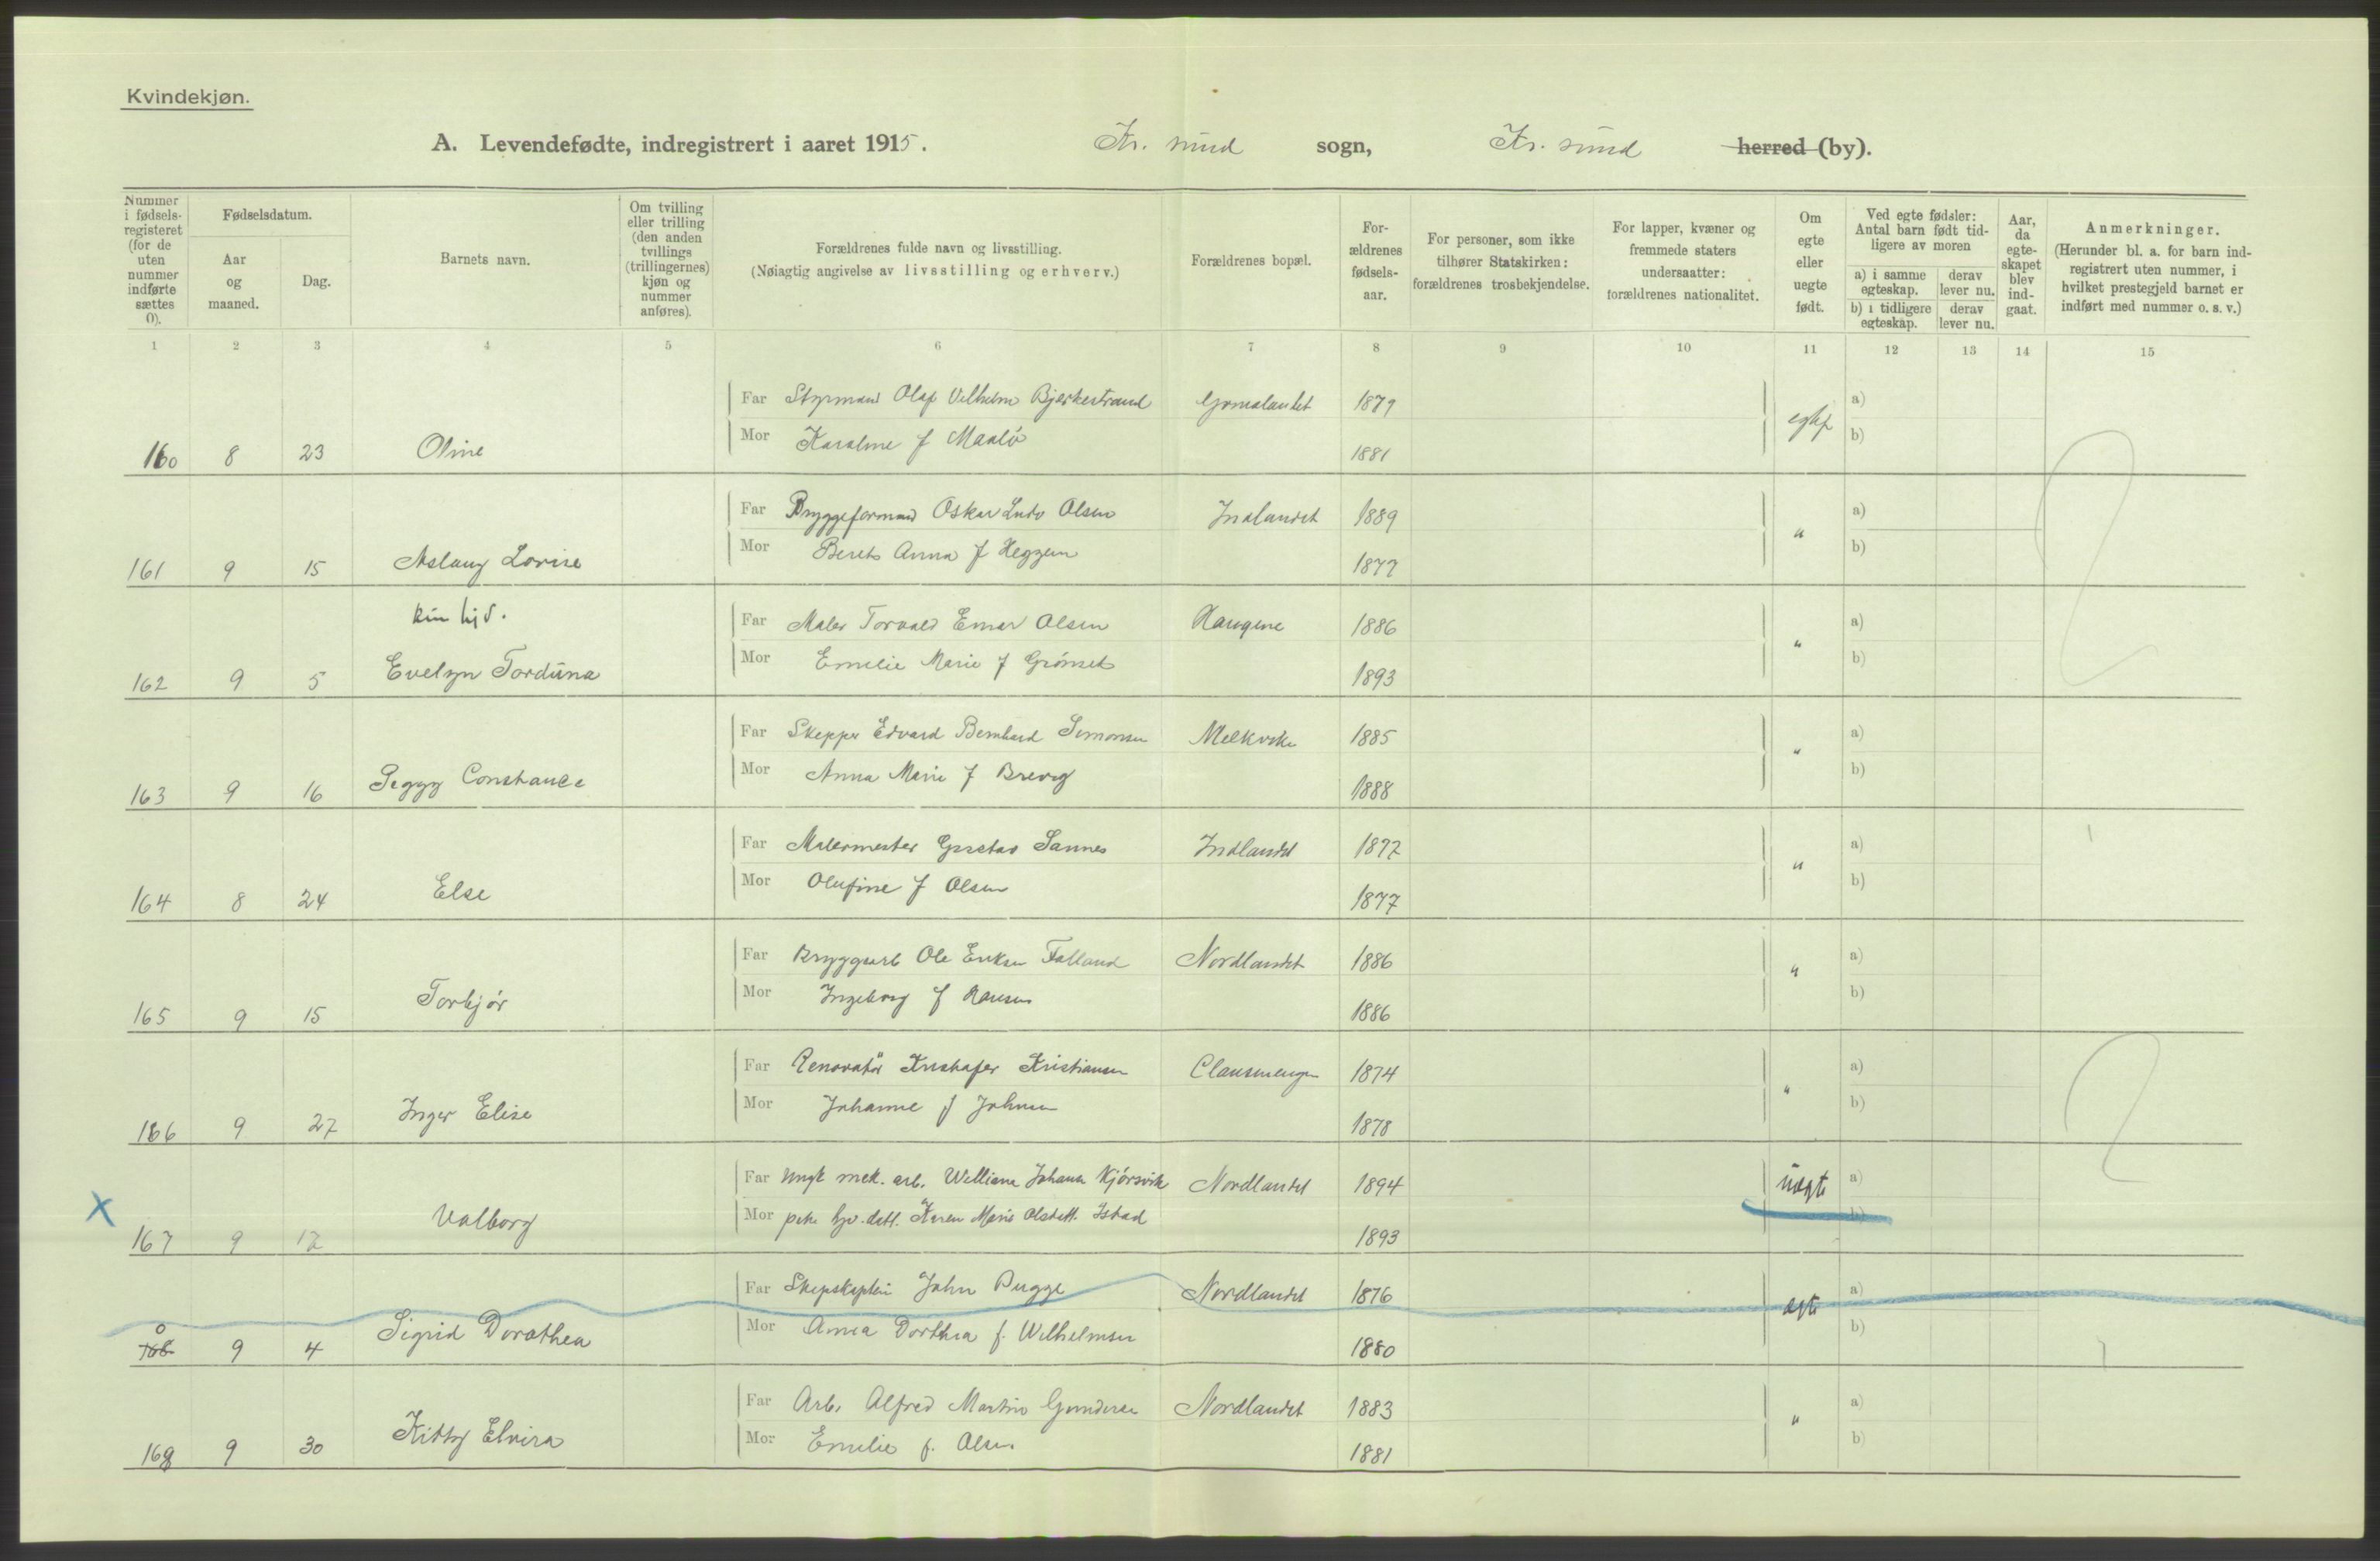 Kvindekjøn.
A. Levendefødte, indregistrert i aaret 1915. Kr. sund sogn, Kr. sund herred (by).
Nummer i fødselsregisteret (for de uten nummer indførte sættes 0).
Fødselsdatum.
Aar og maaned.
Dag.
Barnets navn.
Om tvilling eller trilling (den anden tvillings (trillingernes) kjøn og nummer anføres).
Forældrenes fulde navn og livsstilling.
(Nøiagtig angivelse av livsstilling og erhverv.)
Forældrenes bopæl.
Forældrenes fødselsaar.
For personer, som ikke tilhører Statskirken: forældrenes trosbekjendelse.
For lapper, kvæner og fremmede staters undersaatter: forældrenes nationalitet.
Om egte eller uegte født.
Ved egte fødsler: Antal barn født tidligere av moren
a) i samme egteskap. derav lever nu.
b) i tidligere egteskap. derav lever nu.
Aar, da egteskapet blev indgaat.
Anmerkninger.
(Herunder bl. a. for barn indregistrert uten nummer, i hvilket prestegjeld barnet er indført med nummer o. s. v.)
1 2 3 4 5 6 7 8 9 10 11 12 13 14 15
Far Styrmand Olaf Vilhelm Bjerkestrand Gomalandet 1879 a)
160 8 23 Oline Mor Karoline f Maalö 1881 b)
Far Bryggeformand Oskar Ludv Olsen Indlandet 1889 a)
161 9 15 Aslaug Lovise Mor Berets Anna f Heggem 1877 " b)
kin hjd.
Far Maler Torvald Einar Olsen Haugene 1886 a)
162 9 5 Evelyn Jordüna Mor Emelie Marie f Grönset 1893 " b)
Far Skepper Edvard Bernhard Simonsen Melkvika 1885 a)
163 9 16 Peggy Constance Mor Anna Marie f Brevig 1888 " b)
Far Malermester Gustav Sannes Indlandet 1877 a)
164 8 24 Else Mor Olufine f Olsen 1877 " b)
Far Bryggearb Ole Eriksen Falland Nordlandet 1886 a)
165 9 15 Torbjør Mor Ingeborg f Hansen 1886 " b)
Far Renovatör Kristofer Kristiansen Clausenengen 1874 a)
166 9 27 Inger Elise Mor Johanne f Johnsen 1878 " b)
Far Ungk mek. arb. William Johann Kjörsvik Nordlandet 1894 üegte a)
X 167 9 12 Valborg Mor pike Karen Marie Istad 1893 b)
Far Skepskaptein John Bugge Nordlandet 1876 a)
0 168 9 4 Sigrid Dorothea Mor Anna Dorthea f. Wilhelmsen 1880 egte b)
Far Arb. Alfred Martin Gundersen Nordlandet 1883 a)
168 9 30 Kitty Elvira Mor Emelie f. Olsen 1881 " b)